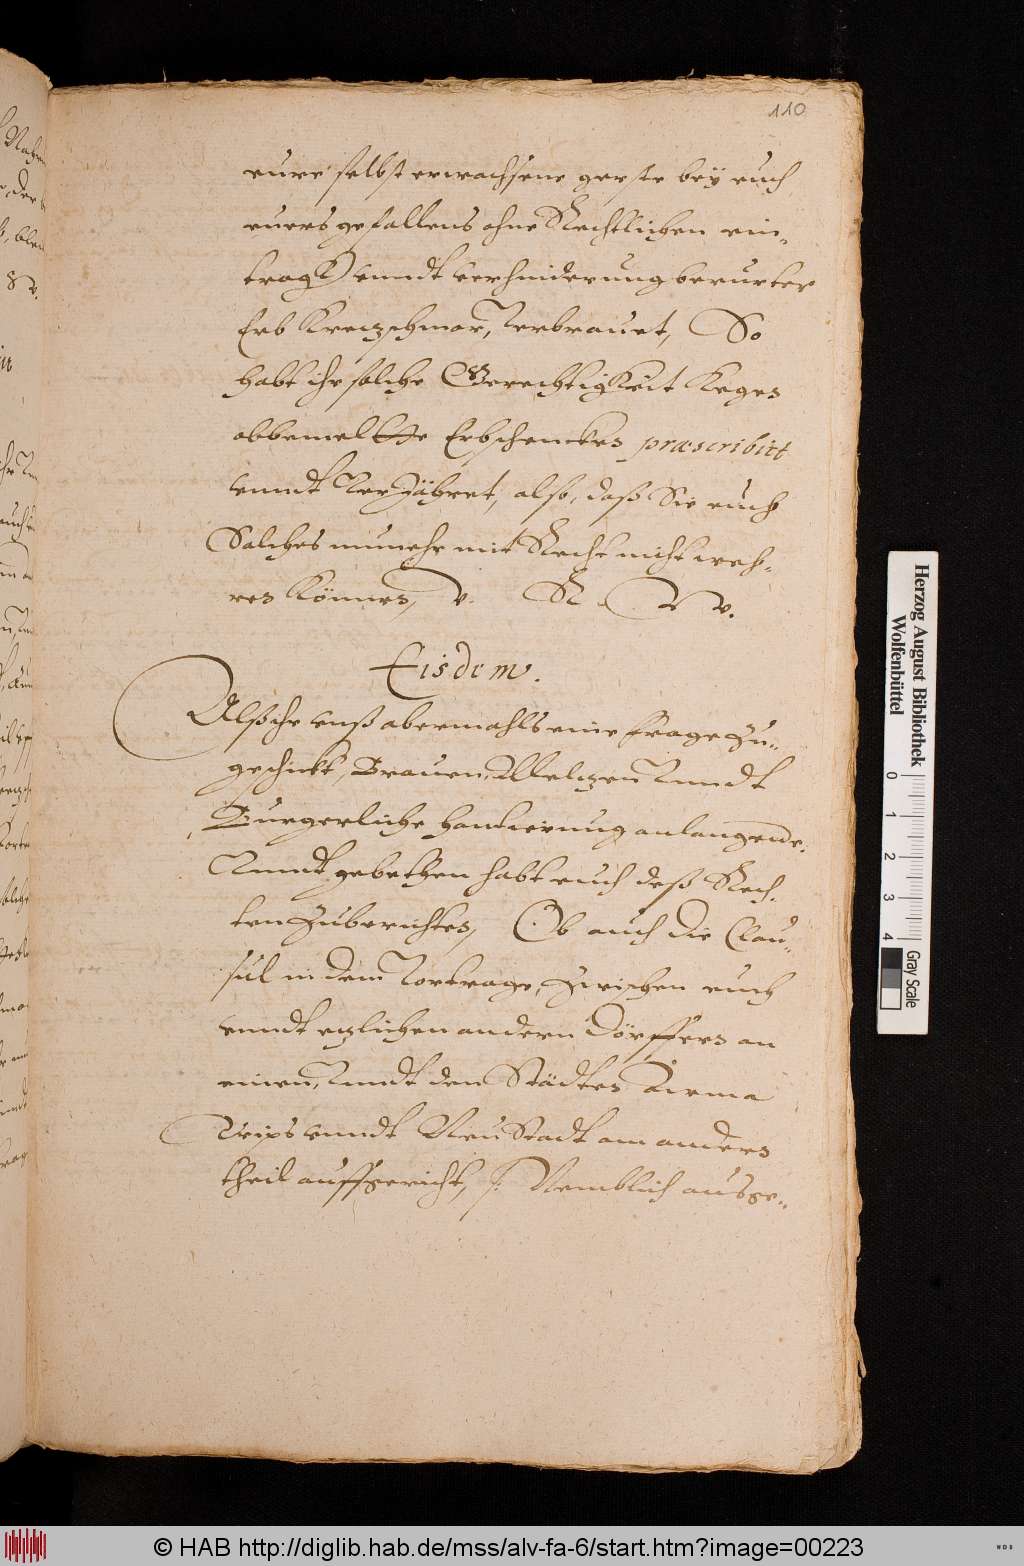 110
eure selbst erwachsene gerste bey euch
euers gefallens ohne Rechtlichen ein-
trag vnndt verhinderung berurter
Erb Kreczschmar, Verbrauet, So
habt ihr solche Gerechtigkeit Kegen
obbemeltte Erbschencken præscribirt
vnndt Verjähret, also, daß Sie euch
Solches nunmehr mit Recht nicht weh-
ren können, v. R. W. v.
Eisdem.
Alß ihr vnß abermahls eine frage zu-
geschickt, Brauen, Melczen Vnndt
Burgerliche Hantierung anlangende,
Vnndt gebethen habt euch deß Rech-
ten zuberichten, Ob auch die Clau-
sul in dem Vortrage, zwischen euch
vnndt eczlichen andern Dörffern an
einem, Vnndt den Städten
vnndt NeuStadt am andern
theil auffgericht, Nemblich ausge-
Herzog August Bibliothek
Wolfenbüttel
0 1 2 3 4
Gray Scale
© HAB http://diglib.hab.de/mss/alv-fa-6/start.htm?image=00223